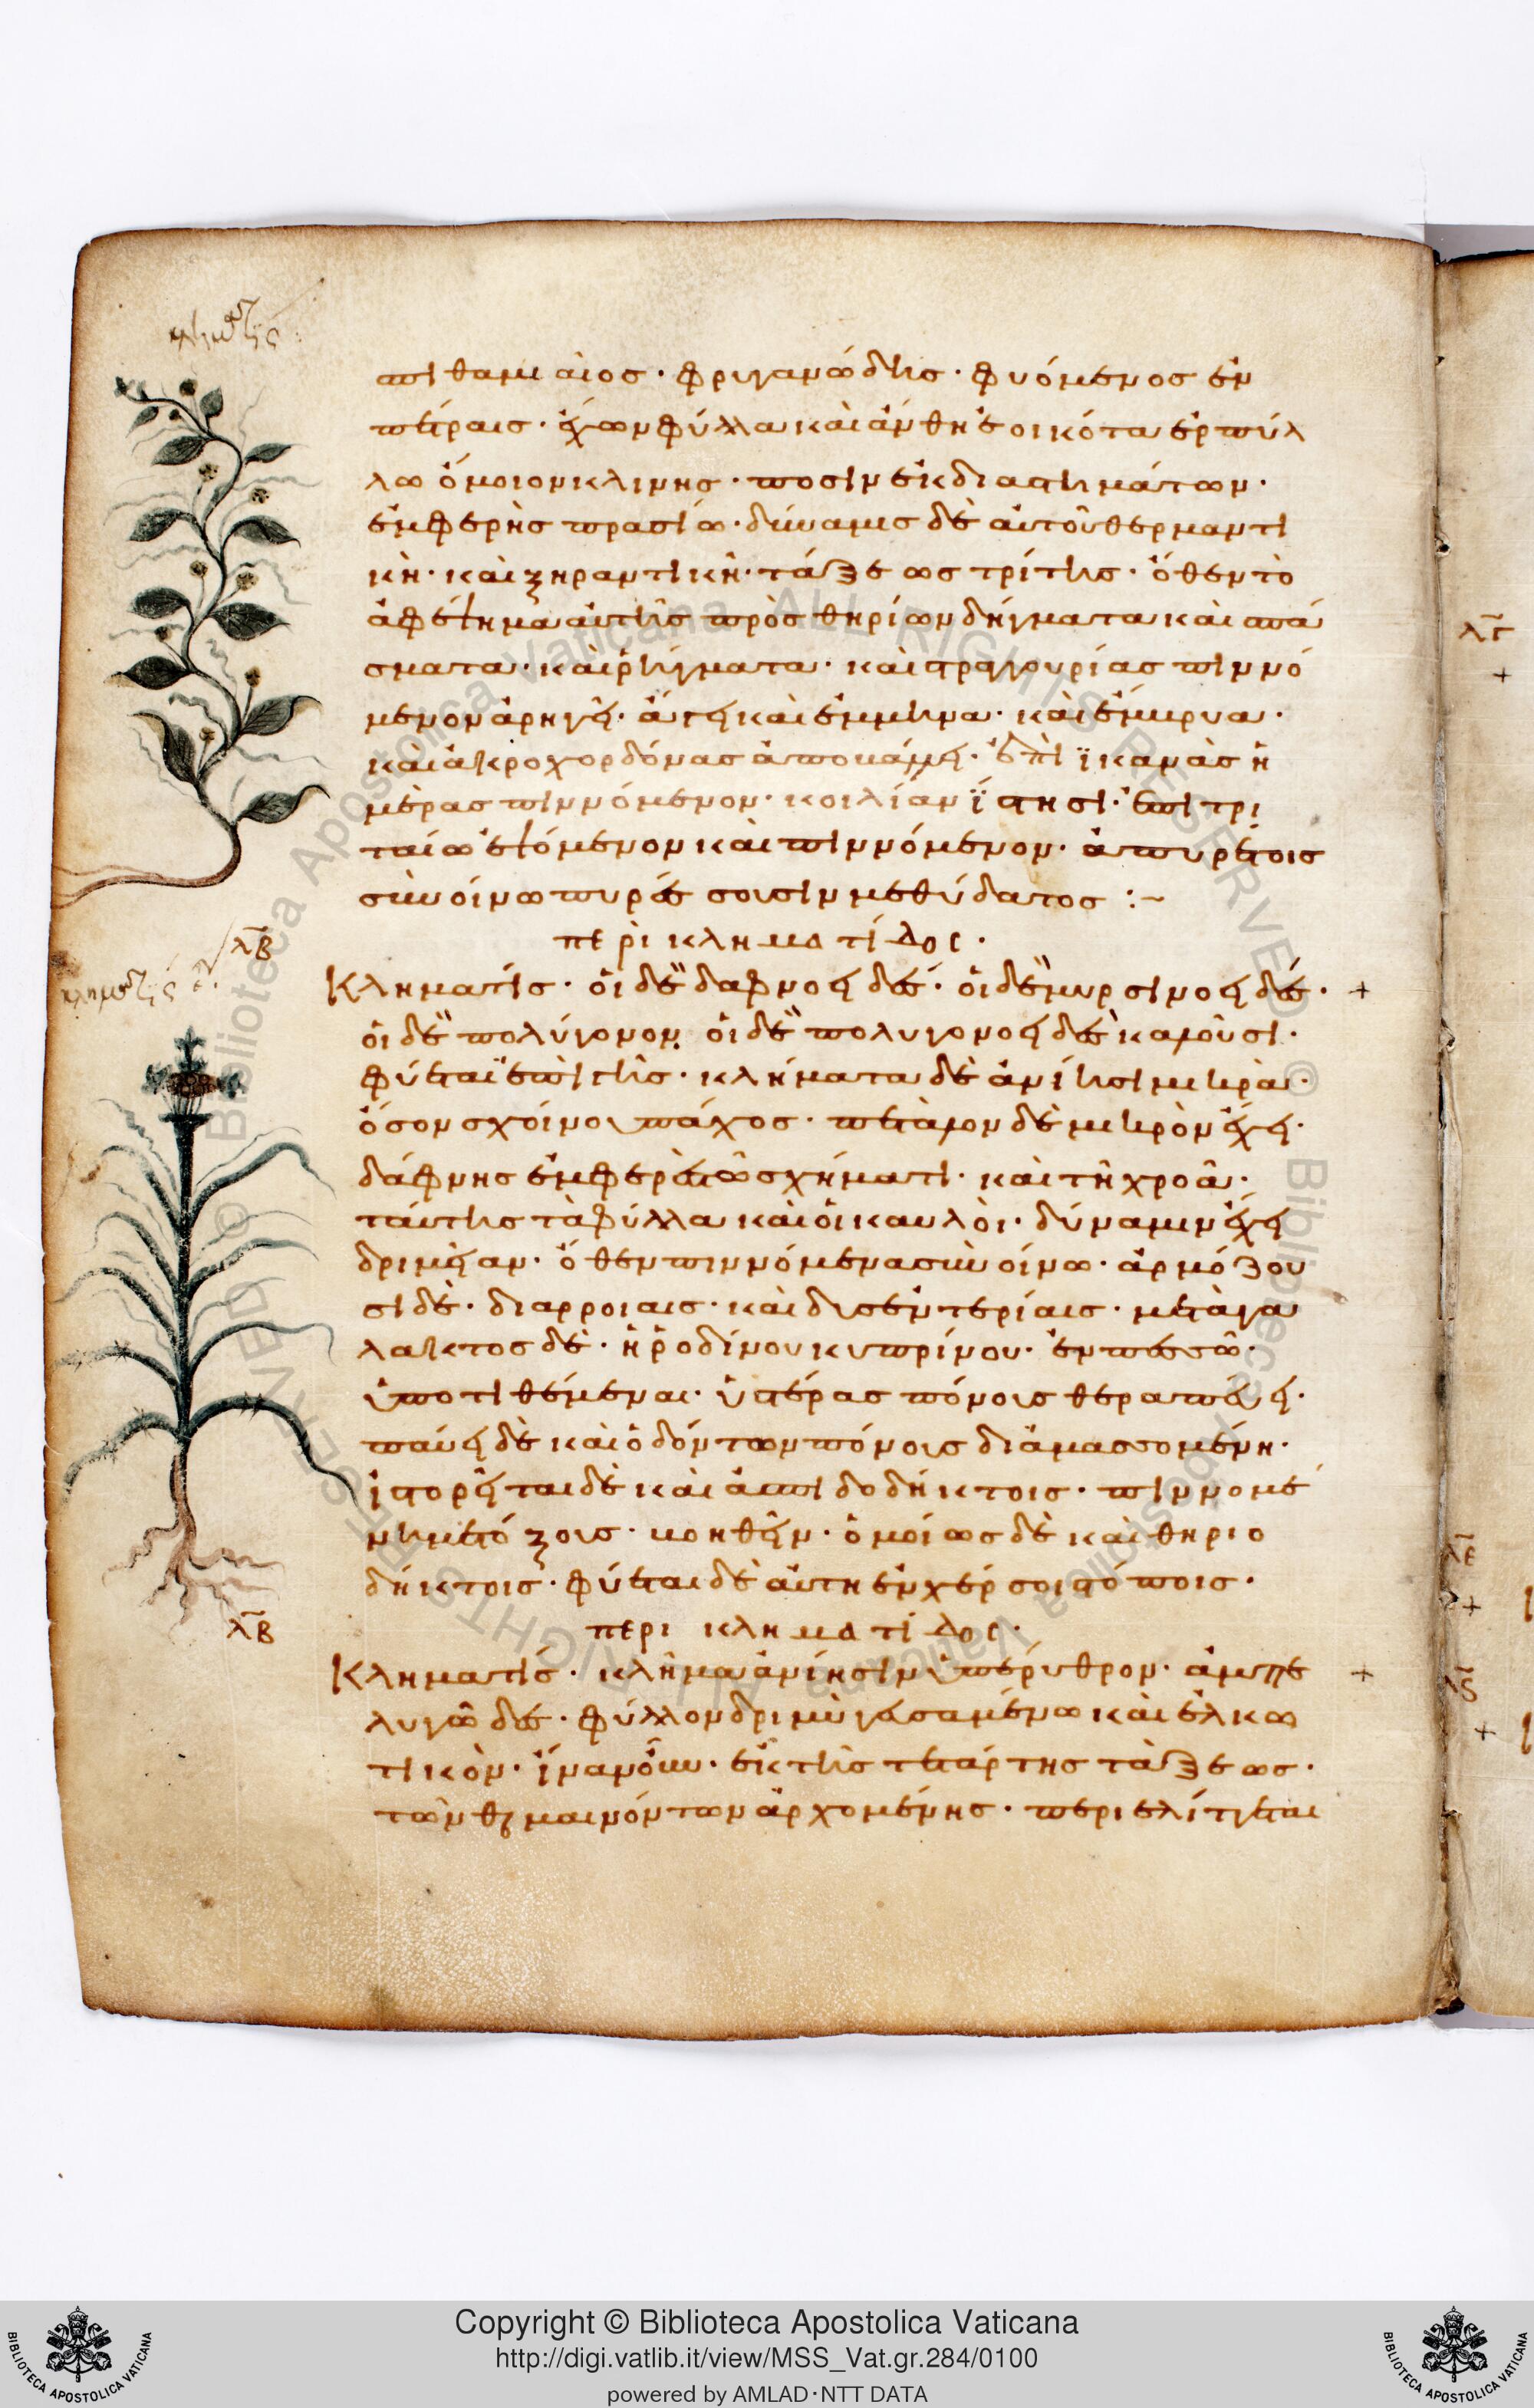 σπιθαμιαῖος · φρυγανώδης · φυόμενος ἐν
πέτραις · ἔχων φύλλα καὶ ἄνθη ἐοικότα ἑρπύλ
λω ὅμοιον κλίνης · ποσὶν ἐκ διαστημάτων ·
ἐμφερὴς πρασίω · δύναμις δὲ αὐτοῦ θερμαντι
κὴ · καὶ ξηραντικὴ · τάξεως τρίτης · ὅθεν τὸ
ἀφέψημα αὐτῆς πρὸς θηρίων δήγματα καὶ σπά
σματα · καὶ ῥήγματα · καὶ στραγουρίας πιννό
μενον ἀρήγει · ἄγει καὶ ἔμμηνα · καὶ ἔμβρυα ·
καὶ ἀκροχορδόνας ἀποβάλλει · ἐπὶ ϊκανὰς ἡ
μέρας πιννόμενον · κοιλίαν ϊστησι · ἐπὶ τρι
ταίω ἑψόμενον καὶ πιννόμενον · ἀπυρέτοις
σὺν οίνω πυρέσσουσιν μεθύδατος :~
περὶ κληματίδος ·
Κληματίς · οἱ δὲ δαφνοειδές · οἱ δὲ μυρσινοειδές · +
οἱ δὲ πολύγονον οἱ δὲ πολυγονοειδὲς καλοῦσι ·
φύεται ἐπὶ γῆς · κλήματα δὲ ἀνίησι μικρὰ ·
ὅσον σχοίνου πάχος · πέταλον δὲ μικρὸν ἔχει ·
δάφνης ἐμφερὲς τῶ σχήματι · καὶ τῆ χροᾶ ·
ταύτης τὰ φύλλα καὶ οἱ καυλοὶ · δύναμιν ἔχει
δριμεῖαν · ὅθεν πιννόμενα σὺν οίνω · ἁρμόζου
σι δὲ · διαρροιαις · καὶ δυσεντερίαις · μετὰ γα
λακτος δὲ · ἢ ῥοδίνου κυπρίνου · ἐν πεσσῶ ·
ὑποτιθέμεναι · ὑστέρας πόνους θεραπεύει ·
παύει δὲ καὶ ὀδόντων πόνους διαμασσομένη ·
ἱστορεῖται δὲ καὶ ἀσπιδοδήκτοις · πιννομέ
νη μετ ὄξους · βοηθεῖν · ὁμοίως δὲ καὶ θηριο
δήκτοις · φύεται δὲ αὕτη ἐν χέρσοις τόποις ·
περι κληματίδος ·
Κληματίς · κλῆμα ἀνίησιν ὑπέρυθρον · ἀμπε +
λυγῶδες · φύλλον δριμὺ γευσαμένω καὶ ἑλκω
τικὸν · ἱνανοῦν · ἐκ τῆς τετάρτης τάξεως ·
τῶν θερμαινόντων ἀρχομένης · περιελίττεται
κληματίς
λβ
κληματίς
λβ
λγ
+
λε
+
λς
+
Copyright © Biblioteca Apostolica Vaticana
http://digi.vatlib.it/view/MSS_Vat.gr.284/0100
powered by AMLAD·NTT DATA
BIBLIOTECA APOSTOLICA VATICANA
BIBLIOTECA APOSTOLICA VATICANA